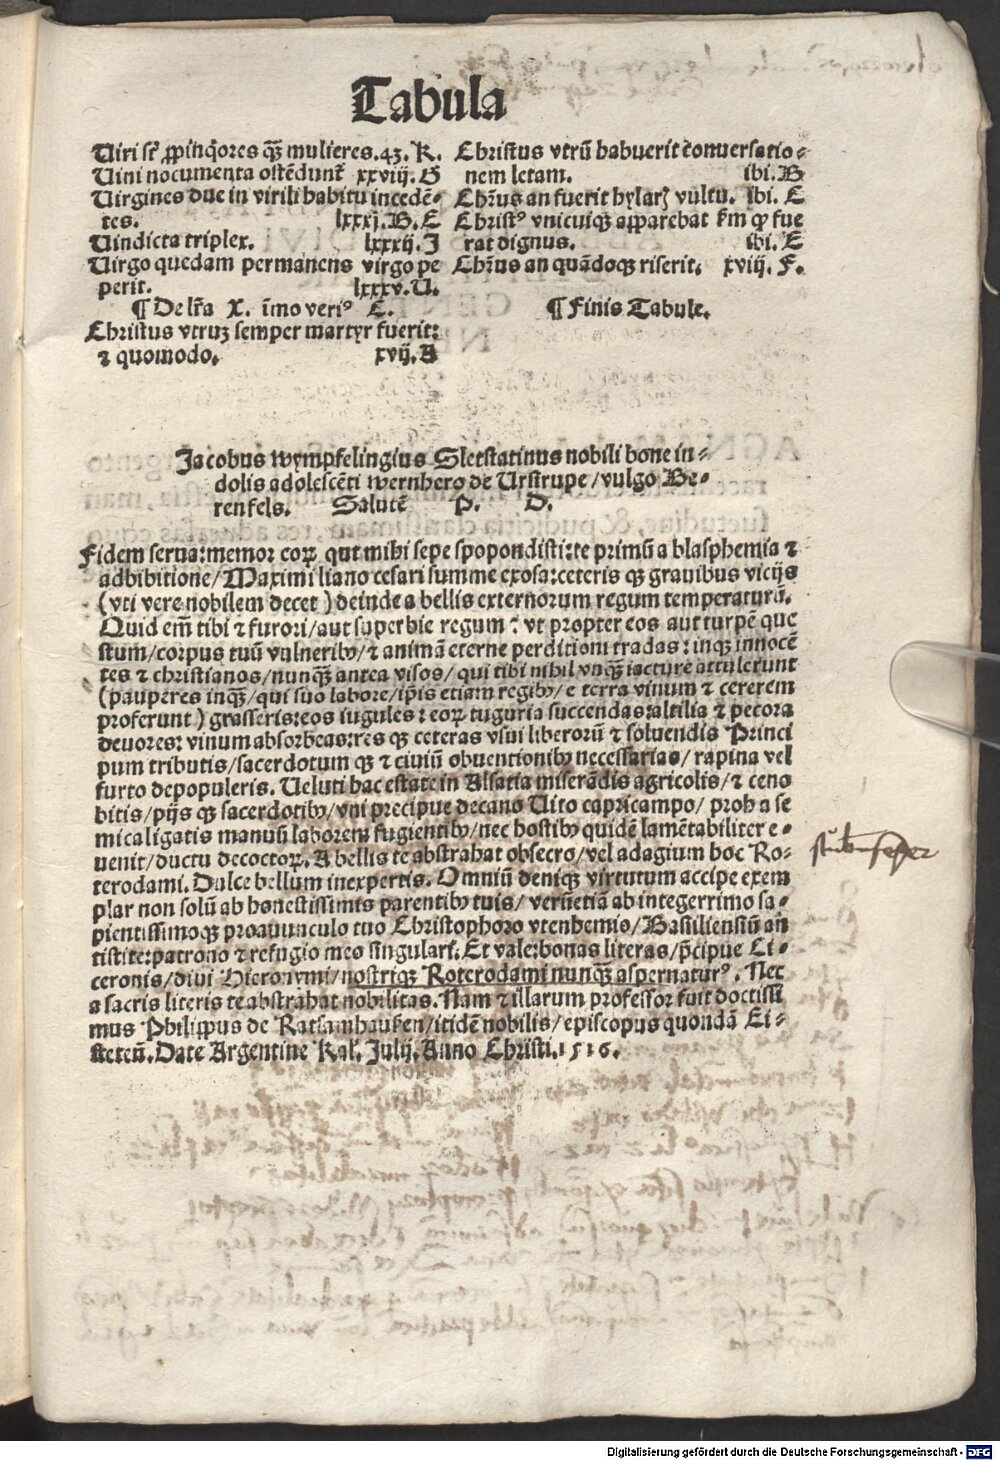 Tabula
Uiri sūt ꝓpinq̄ores qȝ̄ mulieres.43. K.
Uini nocumenta ostēdunt̄ xxviij. G
Uirgines due in virili habitu incedē⸗
tes. lxxxj. B. C
Uindicta triplex. lxxxij. J
Uirgo quedam permanens virgo pe
perit. lxxxv. U.
¶ De lr̄a X. īmo veriꝰ C.
Christus vtruȝ semper martyr fuerit:
⁊ quomodo. xvij. A
Christus vtrū habuerit cōuersatio⸗
nem letam. ibi. B
Chr̄us an fuerit hylarȝ vultu. ibi. C
Christꝰ vnicuiqȝ apparebat km̄ ꝙ fue
rat dignus. ibi. E
Chr̄us an quādoqȝ riserit. xviij. F.
¶ Finis Tabule.
Jacobus wympfelingius Sletstatinus nobili bone in⸗
dolis adolescēti wernhero de Urstrupe/vulgo Be⸗
renfels. Salutē P. D.
Fidem serua: memor eoꝝ que mihi sepe spopondisti: te primū a blasphemia ⁊
adbibitione/Maximiliano cesari summe exosa: ceteris qȝ grauibus vicijs
(vti vere nobilem decet) deinde a bellis externorum regum temperaturū.
Quid em̄ tibi ⁊ furori/aut superbie regum: vt propter eos aut turpē que
stum/corpus tuū vulneribꝰ/⁊ animā eterne perditioni tradas: inqȝ innocē
tes ⁊ christianos/nunqȝ̄ antea visos/qui tibi nihil vnqȝ̄ iacture attulerunt
(pauperes inqȝ̄/qui suo labore/ip̄is etiam regibꝰ/e terra vinum ⁊ cererem
proferunt) grasseris: eos iugules: eoꝝ tuguria succendas: altilia ⁊ pecora
deuores: vinum absorbeas: res qȝ ceteras vsui liberorū ⁊ soluendis Princi
pum tributis/sacerdotum qȝ ⁊ ciuiū obuentionibꝰ necessarias/rapina vel
furto depopuleris. Ueluti hac estate in Alsatia miserādis agricolis/⁊ ceno
bitis/pijs qȝ sacerdotibꝰ/vni precipue decano Uito capricampo/proh a se
micaligatis manuū laborem fugientibꝰ/nec hostibꝰ quidē lamētabiliter e⸗
uenit/ductu decoctoꝝ. A bellis te abstrahat obsecro/vel adagium hoc Ro⸗
terodami. Dulce bellum inexpertis. Omniū deniqȝ virtutum accipe exem
plar non solū ab honestissimis parentibꝰ tuis/verūetiā ab integerrimo sa⸗
pientissimoqȝ proauunculo tuo Christophoro vtenhemio/Basiliensiū an̄
tistite: patrono ⁊ refugio meo singulari. Et vale: bonas literas/p̄cipue Ci⸗
ceronis/diui Hieronymi/nostriqȝ Roterodami nunqȝ̄ aspernaturꝰ. Nec
a sacris literis te abstrahat nobilitas. Nam ⁊ illarum professor fuit doctissi
mus Philippus de Ratsamhausen/itidē nobilis/episcopus quondā Ei⸗
stetēn. Date Argentine Kal. Julij. Anno Christi. 1516.
Digitalisierung gefördert durch die Deutsche Forschungsgemeinschaft - DFG